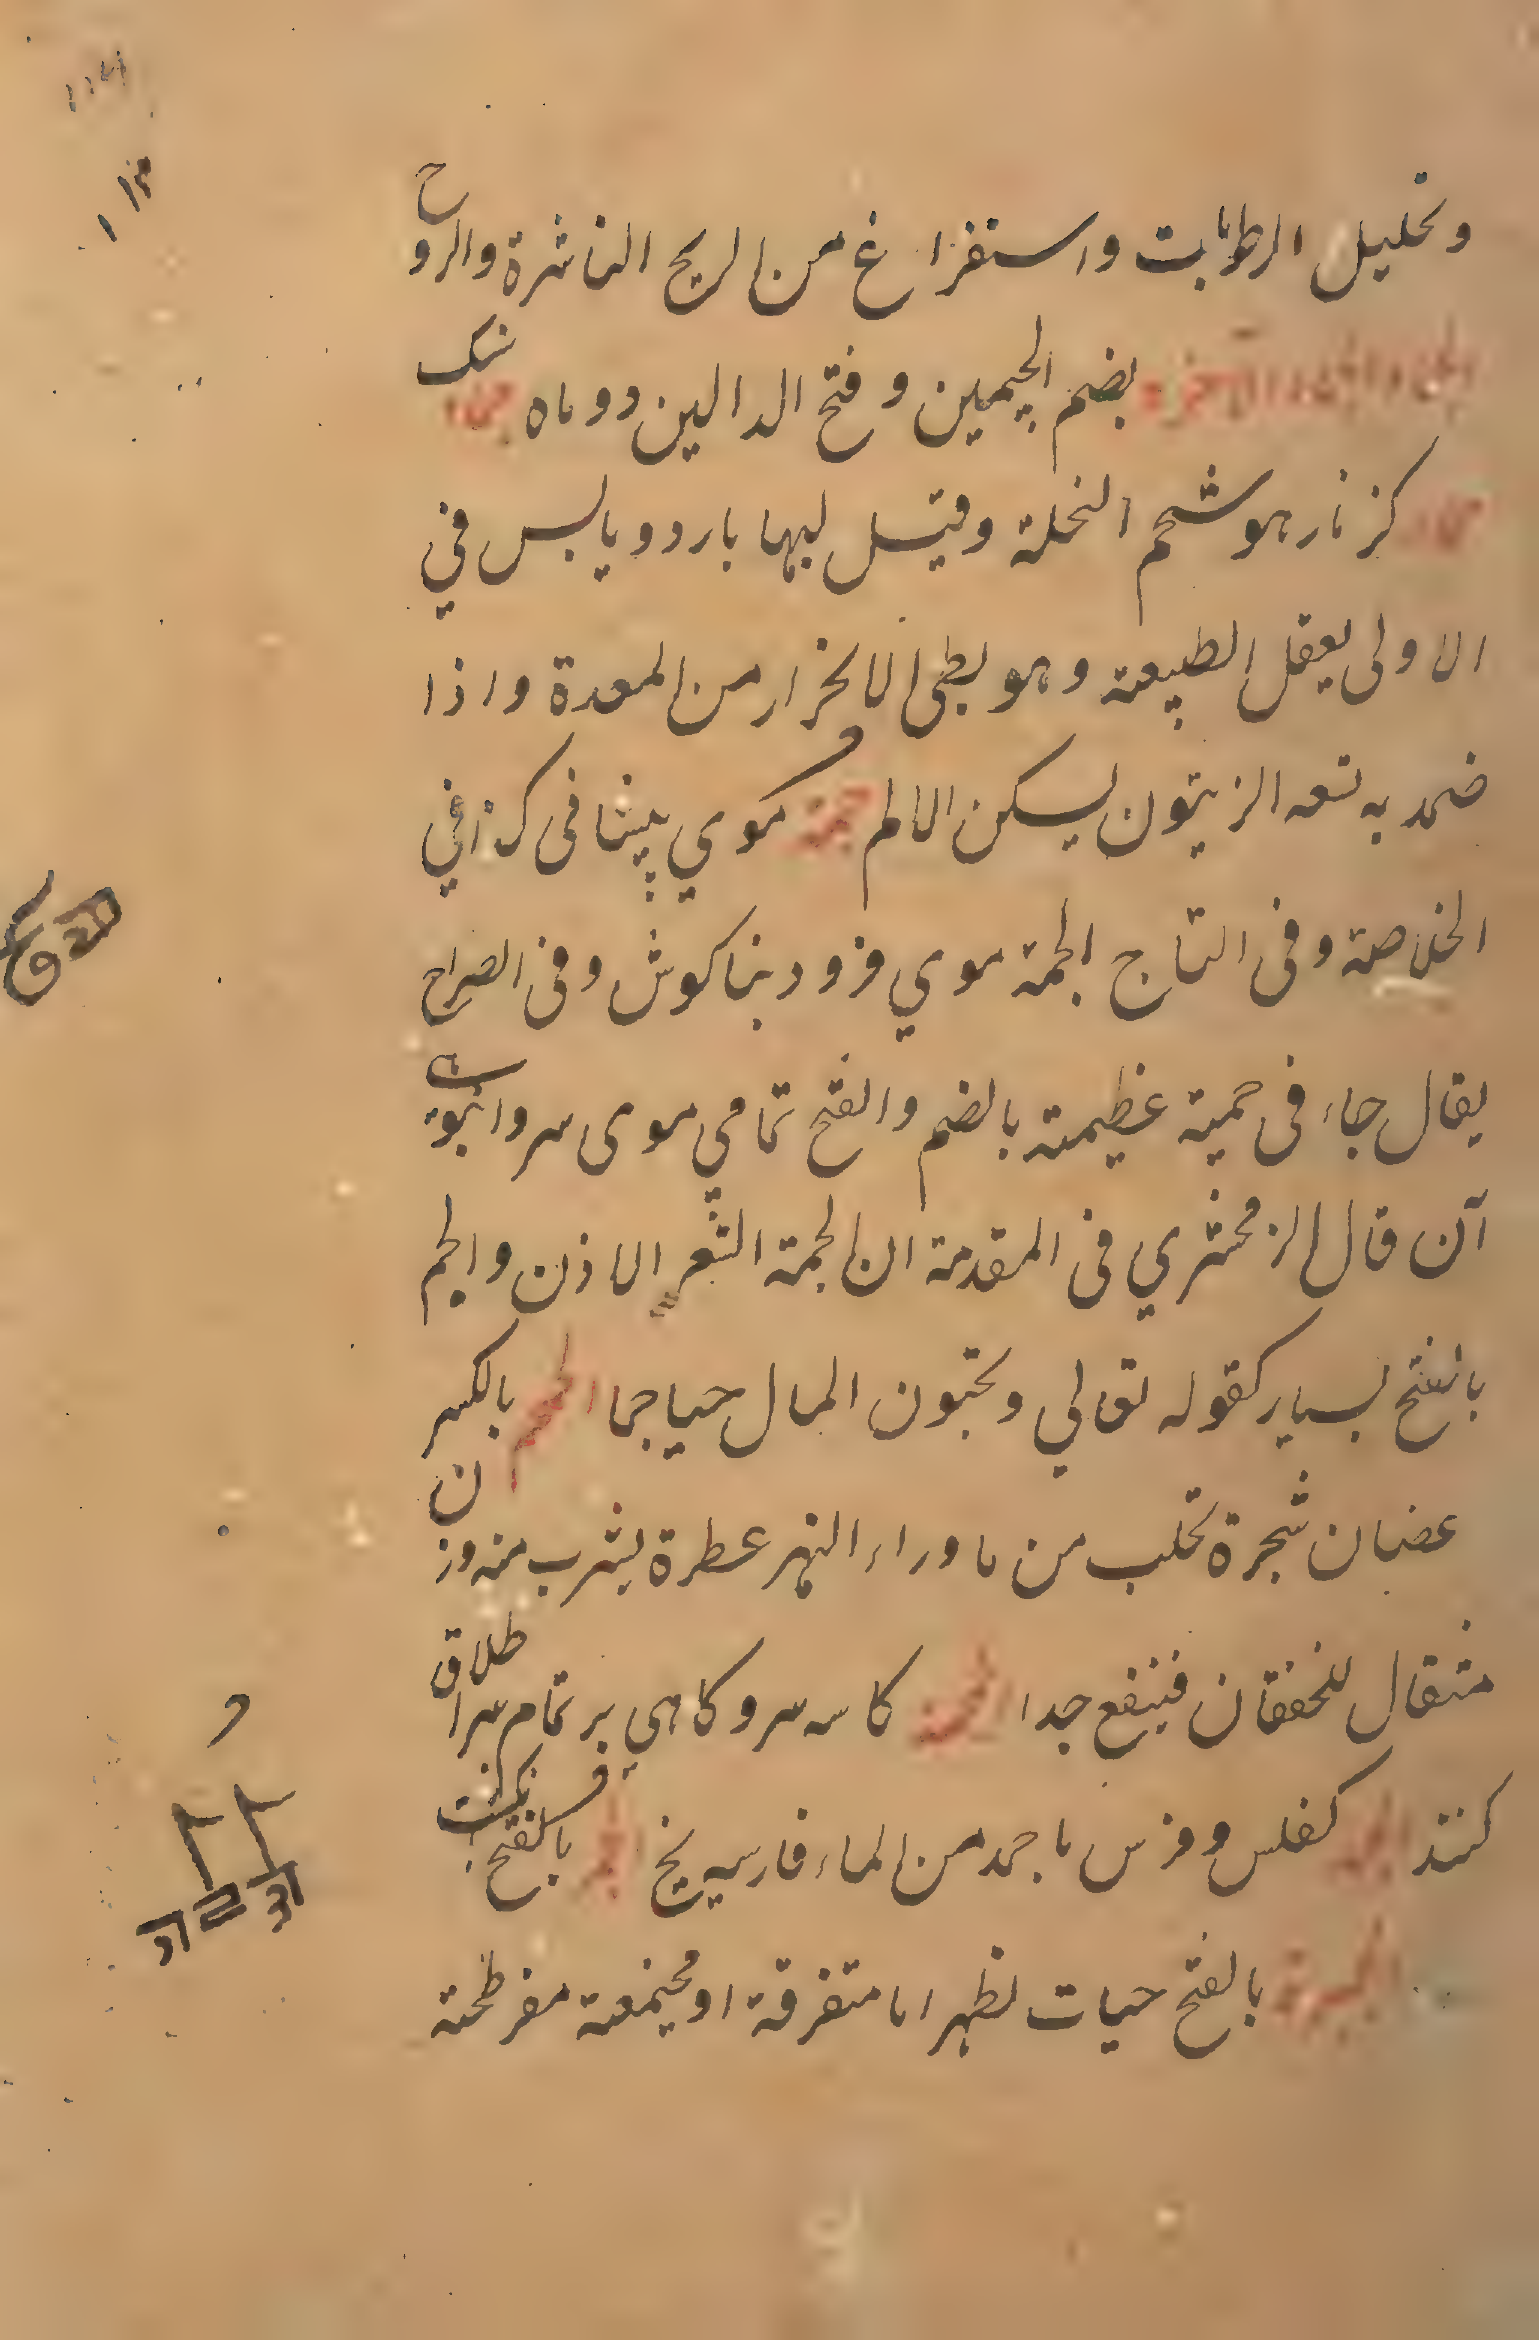 وتحليل الرطوبات واستفراغ من الريح الناشرة والروح
بضم الجيمين وفتح الدالين دو ماه
كزنار هو شحم النخلة وقيل لبها بارد ويابس في
الاولى يعقل الطبيعة وهو بطى الانحزار من المعدة واذا
ضمد به لسعه الزيتون يسكن الالم جمة موي پيشانى كذا في
الخلاصة وفى التاج الجمة موي فرود بناكوش وفى الصراح
يقال جاء فى جمية عظيمة بالضم والفتح تمامي موى سر وانبوه
آن قال الزمخشري فى المقدمة ان الجمة الشعر الاذن والجم
بالفتح بسيار كقوله تعالي وتحبون المال حبا جما بالكسر
عضبان شجرة تجلب من ماوراء النهر عطرة يشرب منه وزن
مثقال للخفقان فينفع جدا كاسه سر و كاهي بر تمام سر اطلاق
كنند كفلس وفرس ما جمد من الماء فارسيه يخ بالفتح
بالفتح حبات تظهر اما متفرقة او مجتمعة مفرطحة